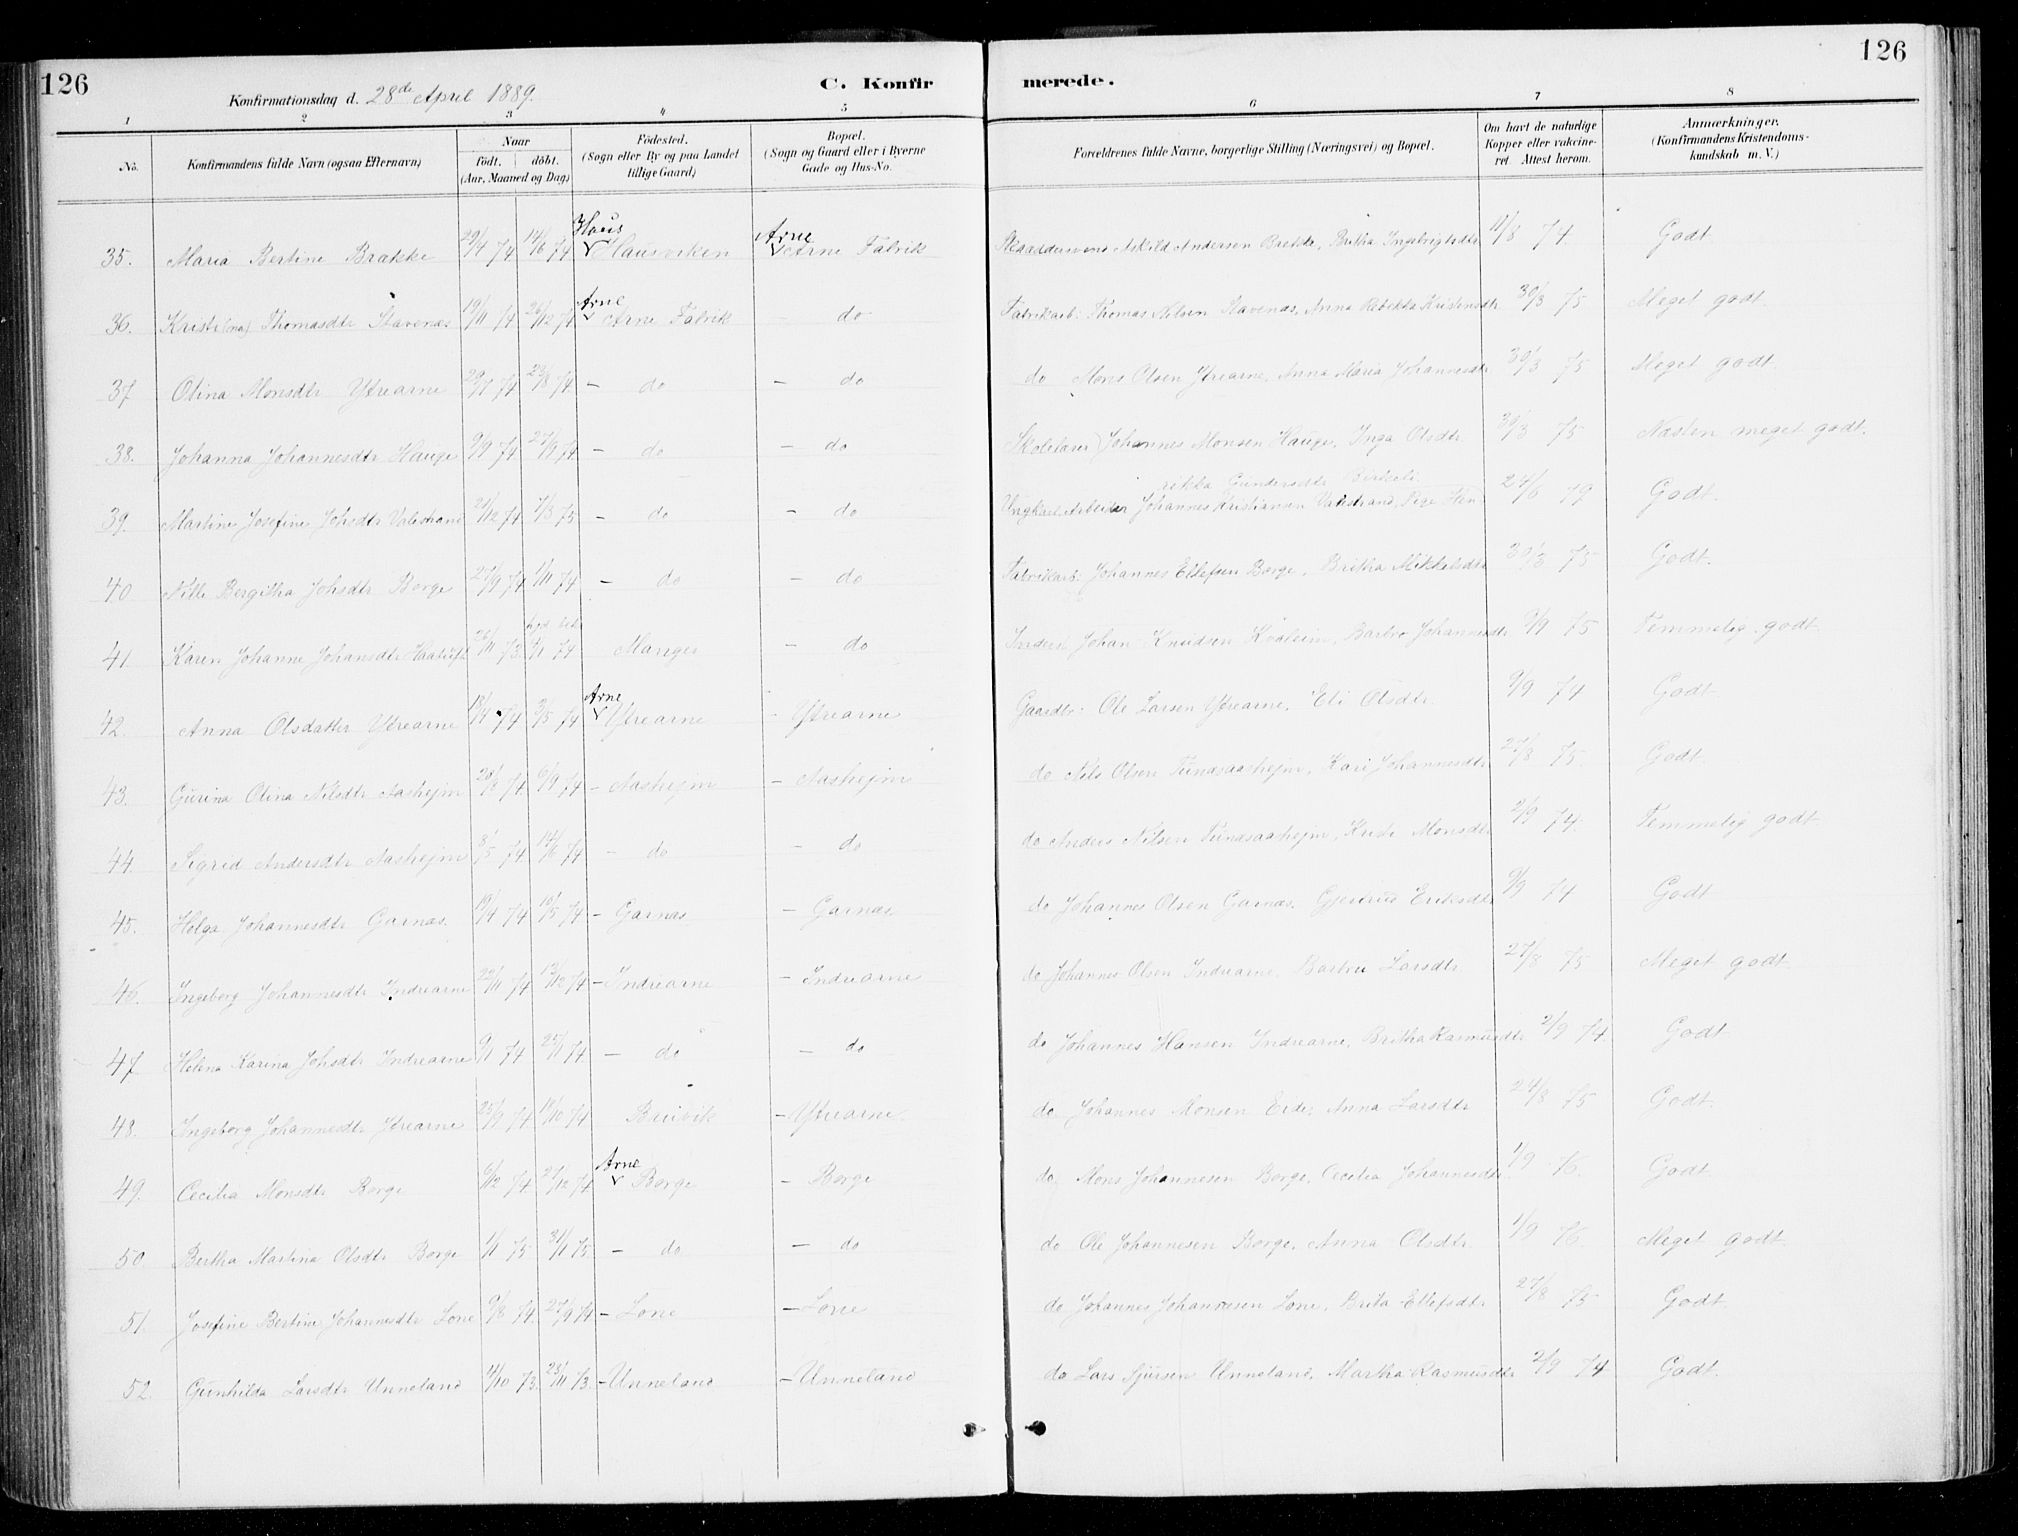 126
126
Konfirmationsdag d. 28de April 1889.
C. Konfir merede.
1 2 3 4 5 6 7 8
No.
Konfirmandens fulde Navn (ogsaa Efternavn)
Naar
födt. döbt.
(Aar, Maaned og Dag)
Födested.
(Sogn eller By og paa Landet
tillige Gaard)
Bopæl.
(Sogn og Gaard eller i Byerne
Gade og Hus-No.
Forældrenes fulde Navne, borgerlige Stilling (Næringsvei) og Bopæl.
Om havt de naturlige
Kopper eller vakcine-
ret. Attest herom.
Anmærkninger.
(Konfirmandens Kristendoms-
kundskab m. V.)
35. Maria Bertine Brække 29/4 74 14/6 74 Haus Hausviken Arne Arne Fabrik Askild Andersen Brekke, Britha Ingebrigtsdtr 11/8 74 Godt
36. Kristi(na) Thomasdtr Stavenæs 19/11 74 26/12 74 Arne Arne Fabrik - do Fabrikarb: Thomas Nilsen Stavenæs, Anna Rebekka Kristensdtr 30/3 75 Meget godt.
37 Olina Monsdtr Ytrearne 29/7 74 23/8 74 - do - do do Mons Olsen Ytrearne, Anna Maria Johannesdtr 30/3 75 Meget godt.
38. Johanna Johannesdtr Hauge 9/9 74 27/9 74 - do - do Skolelærer Johannes Monsen Hauge, Inga Olsdtr 30/3 75 Næsten meget godt.
rikka Gundersdtr Birkeli
39. Martine Josefine Johsdtr Valestrand 21/12 74 7/3 75 - do - do Ungkarl, Arbeider Johannes Kristiansen Valestrand, Pige Hen- 24/6 79 Godt.
40 Nille Bergitha Johsdtr Borge 27/9 74 1/11 74 - do - do Fabrikarb: Johannes Ellefsen Borge, Britha Mikkelsdtr 30/3 75 Godt.
41. Karen Johanne Johansdtr 26/11 73 4/1 74 Manger - do Inderst Johan Knudsen Kvaleim, Barbro Johannesdtr 9/9 75 Temmelig godt
42. Anna Olsdatter Ytrearne 18/4 74 3/5 74 Arne Ytrearne - Ytrearne Gaardbr: Ole Larsen Ytrearne, Eli Olsdtr 9/9 74 Godt
43. Gurina Olina Nilsdtr Aashejm 20/8 74 6/9 74 - Aashejm - Aashejm do Nils Olsen Tundsaashejm, Kari Johannesdtr 27/8 75. Godt.
44. Sigrid Andersdtr Aashejm 8/5 74 14/6 74 - do - do do Anders Nilsen Tundsaashejm, Kristi Monsdtr 2/9 74. Temmelig godt
45. Helga Johannesdtr Garnæs. 19/4 74 10/5 74 - Garnæs - Garnæs. do Johannes Olsen Garnæs, Gjertrud Eriksdtr 9/9 74 Godt
46. Ingeborg Johannesdtr Indrearne 22/11 74 13/12 74 - Indrearne - Indrearne do Johannes Olsen Indrearne, Barbra Larsdtr 27/8 75 Meget godt
47 Helena Karina Johsdtr Indrearne 9/1 74 25/1 74 - do - do do Johannes Hansen Indrearne, Britha Rasmusdtr 2/9 74. Godt
48. Ingeborg Johannesdtr Ytrearne 25/9 74 19/10 74 Bruvik - Ytrearne do Johannes Monsen Eide, Anna Larsdtr 24/8 75 Godt.
49. Cecilia Monsdtr Borge 6/12 74 27/12 74 Arne Borge - Borge do Mons Johannesen Borge, Cecilia Johannesdtr 1/9 76. Godt
50. Bertha Martina Olsdtr Borge 1/1 75 31/1 75. - do - do do Ole Johannesen Borge, Anna Olsdtr 1/9 76. Meget godt.
51. Josefine Bertine Johannesdtr Lone 9/8 74. 27/9 74 - Lone - Lone do Johannes Johannesen Lone, Brita Ellefsdtr 27/8 75 Godt.
52. Gunhilda Larsdtr Unneland 4/10 73. 23/11 73. - Unneland - Unneland do Lars Sjursen Unneland, Martha Rasmusdtr 2/9 74 Godt.